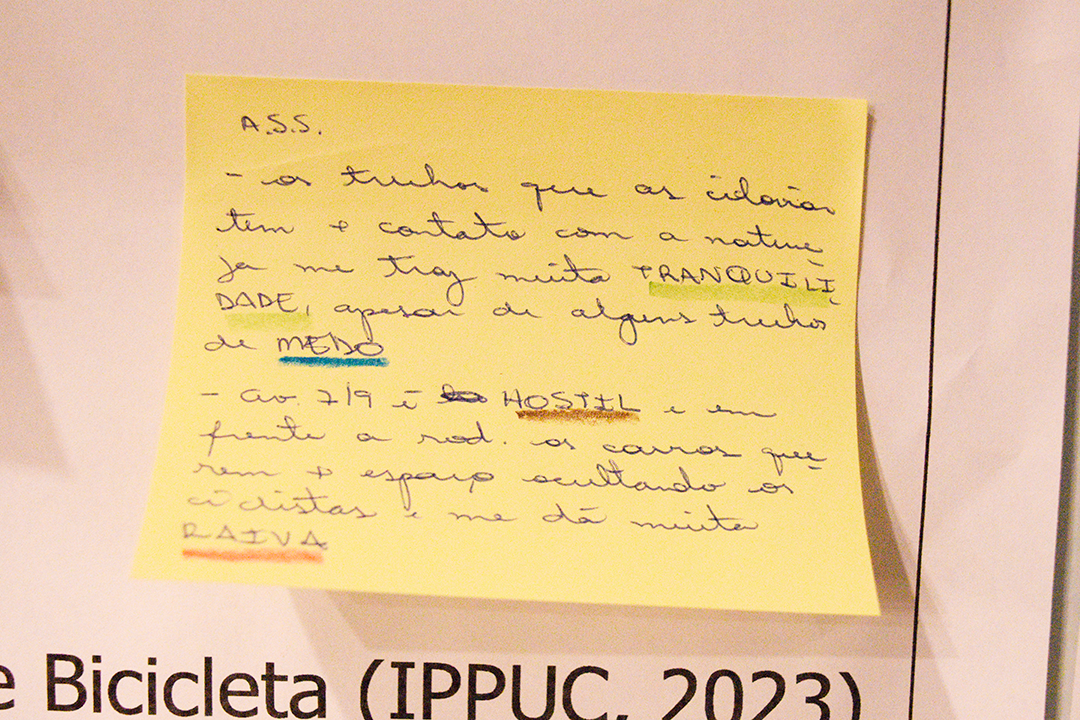 A.S.S.
- os trechos que as ciclovias
tem + contato com a nature
za me traz muita TRANQUILI
DADE, apesar de alguns trechos
de MEDO
- av. 7/9 é HOSTIL e em
frente a rod. os carros que
rem + espaço ocultando os
ciclistas e me dá muita
RAIVA
e Bicicleta (IPPUC, 2023)